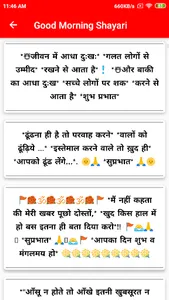 11:46 AM
666B/s
Good Morning Shayari
"☃जीवन में आधा दुःख:" *गलत लोगों से
उम्मीद* *रखने से आता है*❗ *☃और बाकी
का आधा दुःख* *सच्चे लोगों पर शक* *करने से
आता है* *शुभ प्रभात*
ढूंढना ही है तो परवाह करने* *वालों को
ढूंढ़िये ...* *इस्तेमाल करने वाले तो ख़ुद ही*
*आपको ढूंढ लेंगे...*. 🌞🙏 *सुप्रभात* 🌞🙏
🚩🙏🙏🚩🙏🙏🚩 *मैं नहीं कहता
की मेरी खबर पूछो दोस्तों,* *खुद किस हाल में
हो बस इतना ही बता दिया करो*‼ 🚩🙏
🙏 *सुप्रभात* 🙏🚩 *आपका दिन शुभ व
मंगलमय हो*
*"आँसू न होते तो आँखे इतनी खूबसूरत न